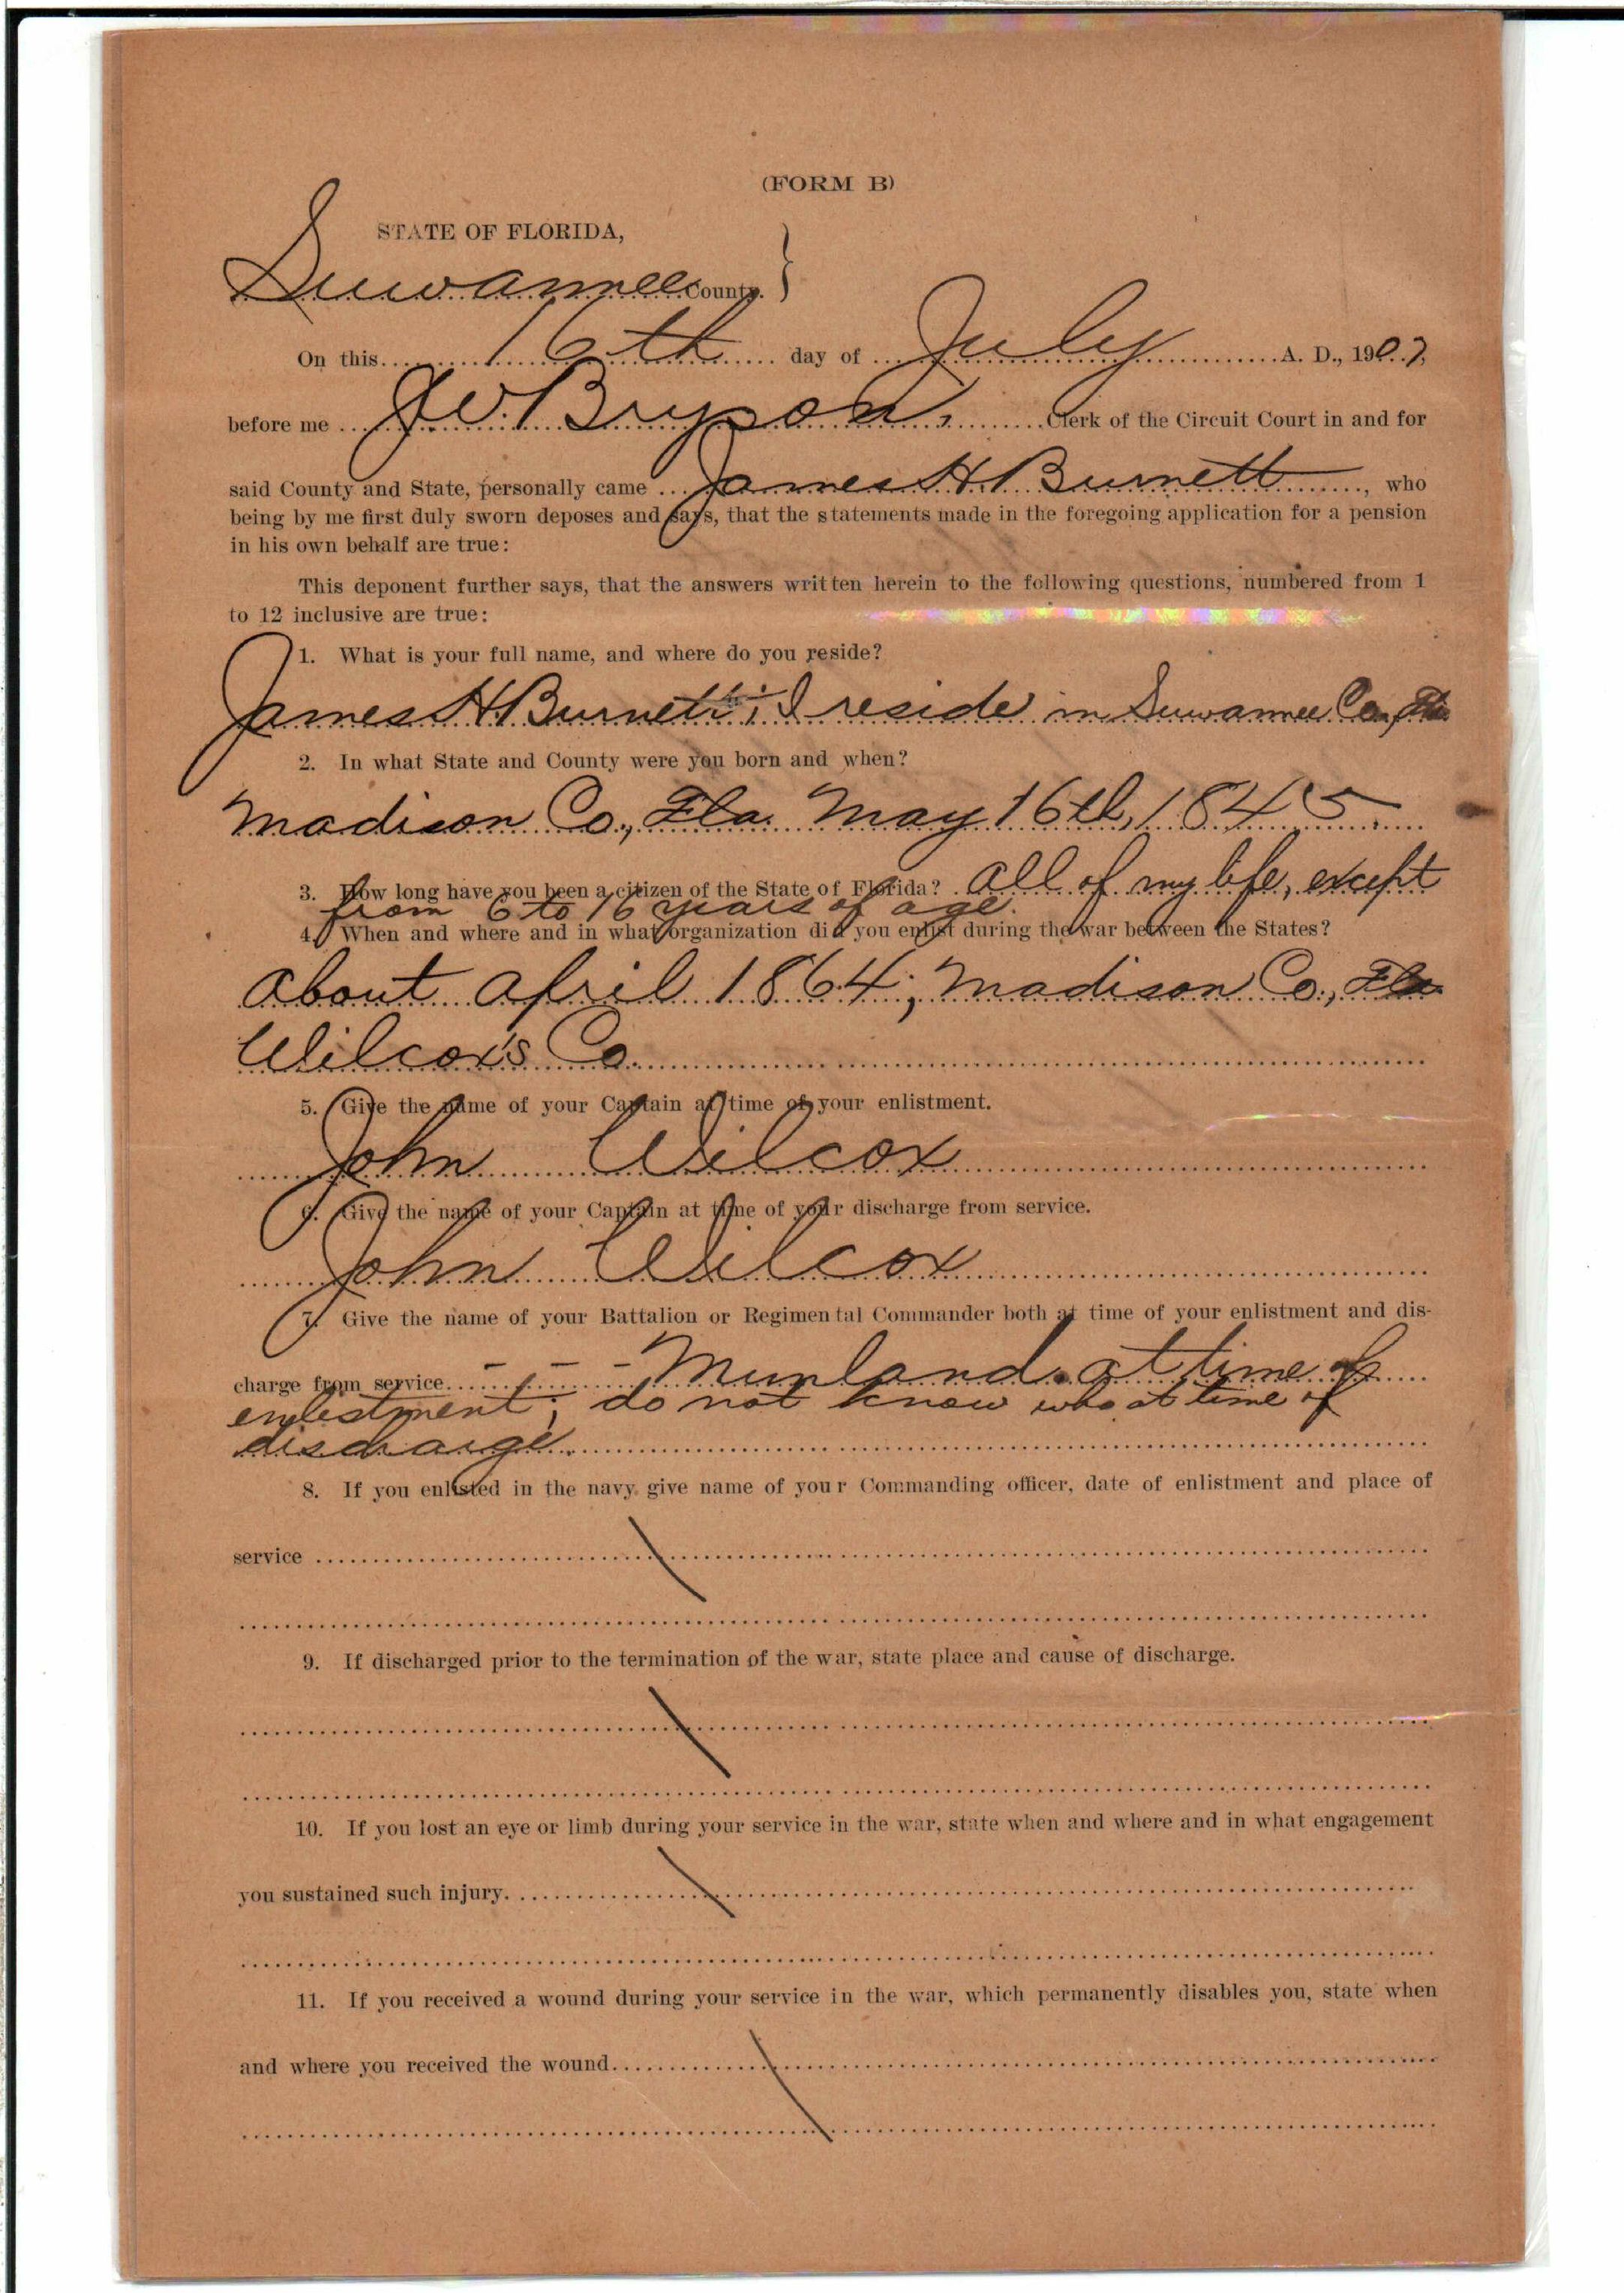 (FORM B)
STATE OF FLORIDA,
Suwannee County.
On this 16th day of July A. D., 1907,
before me J.W. Bryson, Clerk of the Circuit Court in and for
said County and State, personally came James H Burnett, who
being by me first duly sworn deposes and says, that the statements made in the foregoing application for a pension
in his own behalf are true:
This deponent further says, that the answers written herein to the following questions, numbered from 1
to 12 inclusive are true:
1. What is your full name, and where do you reside?
James H Burnett; I reside in Suwannee Co, Fla
2. In what State and County were you born and when?
Madison Co., Fla. May 16th, 1845
3. How long have you been a citizen of the State of Florida? all of my life, except
from 6 to 16 years of age.
4. When and where and in what organization did you enlist during the war between the States?
about april 1864; Madison Co., Fla
Wilcox's Co.
5. Give the name of your Captain at time of your enlistment.
John Wilcox
6. Give the name of your Captain at time of your discharge from service.
John Wilcox
7. Give the name of your Battalion or Regimental Commander both at time of your enlistment and dis-
charge from service - - - Munland. at time of
enlistment; do not know who at time of
discharge.
8. If you enlisted in the navy give name of your Commanding officer, date of enlistment and place of
service
9. If discharged prior to the termination of the war, state place and cause of discharge.
10. If you lost an eye or limb during your service in the war, state when and where and in what engagement
you sustained such injury.
11. If you received a wound during your service in the war, which permanently disables you, state when
and where you received the wound